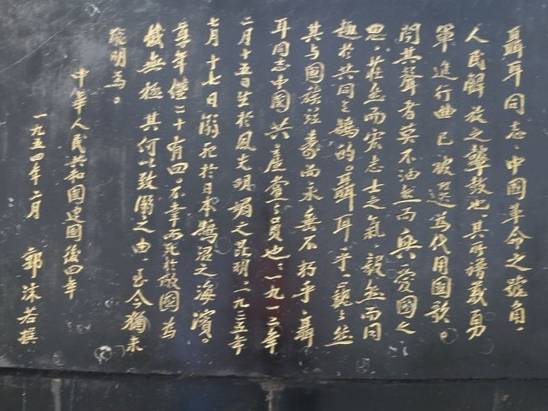 聶耳同志,中國革命之號角,
人民解放之鼙鼓也。其所譜義勇
軍進行曲已被選為代用國歌。
聞其聲者莫不油然而興愛國之
思,莊然而宏志士之氣,毅然而同
趣於共同之鵠的。聶耳乎巍巍然
其与國族並壽而永垂不朽乎!聶
耳同志中國共產黨黨員也,一九一二年
二月十五日生於風光明媚之昆明,一九三五年
七月十七日溺死於日本鵠沼之海濱。
享年僅二十有四。不幸而死於敵國為
憾無極。其何以致溺之由,至今猶未
能明焉。
中華人民共和國建國後四年
一九五四年二月 郭沫若撰